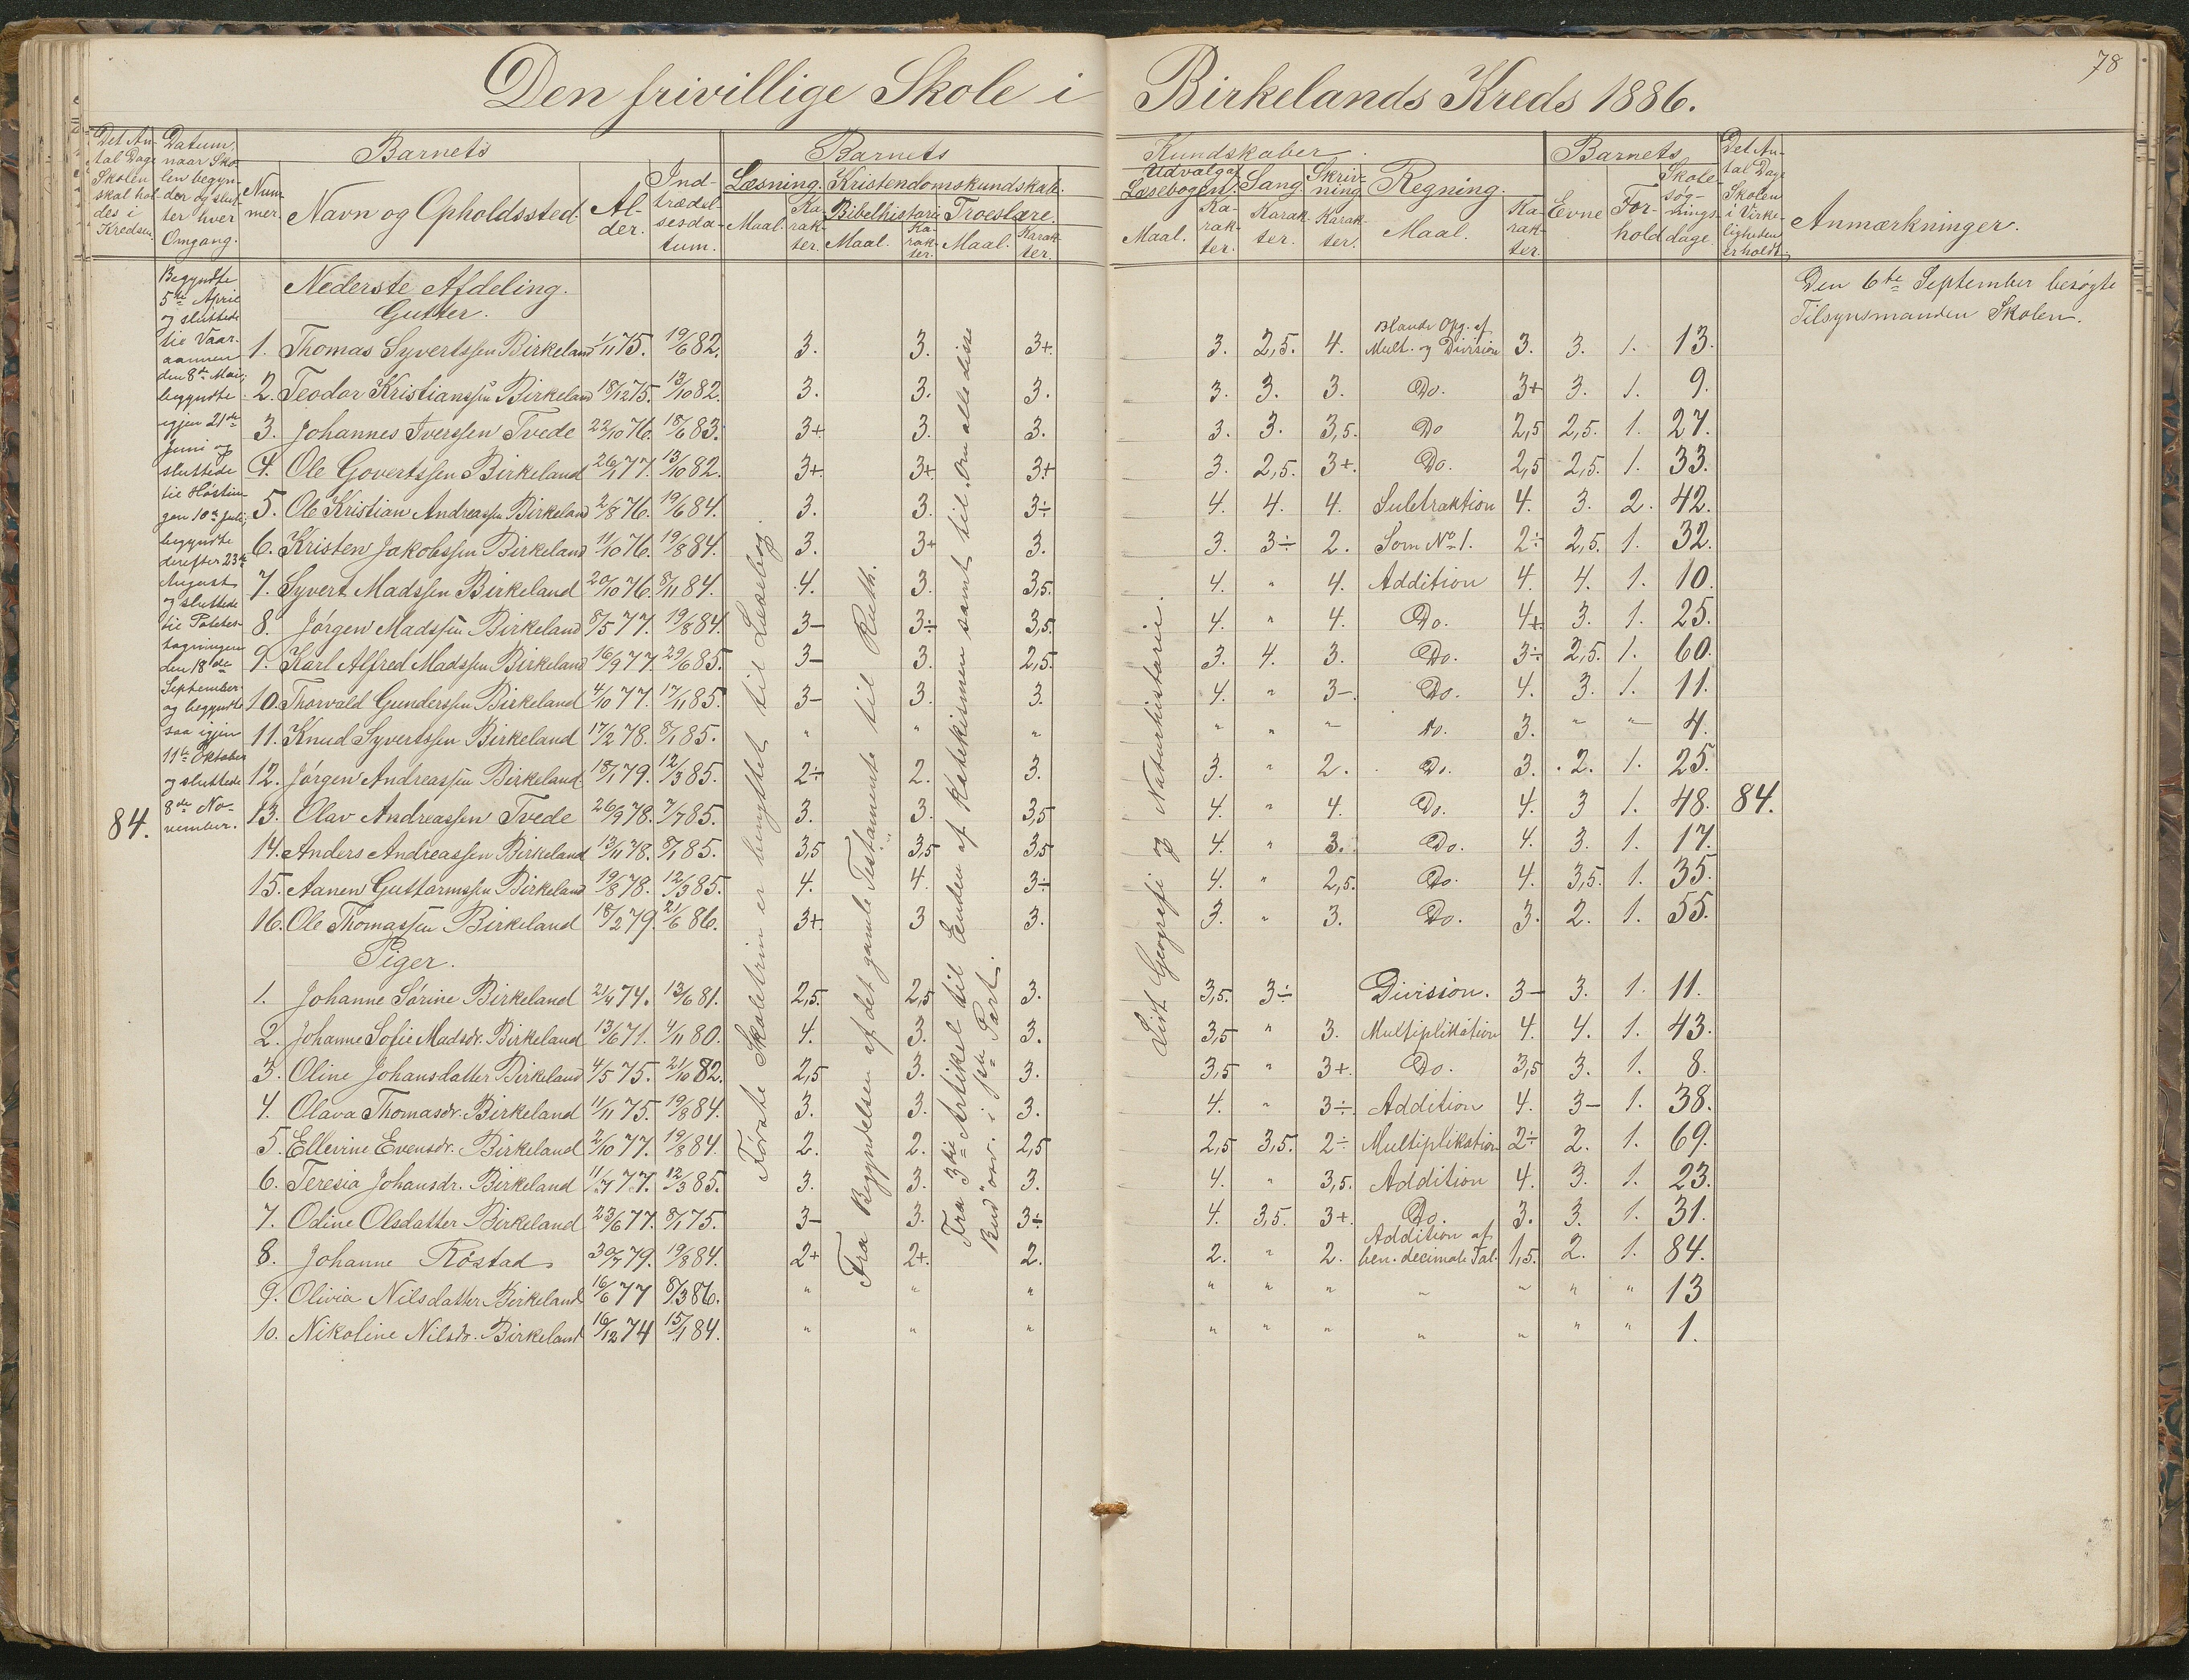 78
Den frivillige Skole i Birkelands Kreds 1886.
Det An-
tal Dage
Skolen
skal hol-
des i
Kredsen.
Datum,
naar Sko-
len begyn-
der og slut-
ter hver
Omgang.
Barnets
Num-
mer.
Navn og Opholdssted.
Al-
der.
Ind-
trædel-
sesda-
tum.
Barnets Kundskaber.
Læsning.
Maal.
Ka-
rak-
ter.
Kristendomskundskab.
Bibelhistorie
Maal.
Ka-
rak-
ter.
Troeslære.
Maal.
Karak-
ter.
Udvalg af
Læsebogen.
Maal.
Ka-
rak-
ter.
Sang
Karak-
ter.
Skriv-
ning
Karak-
ter.
Regning.
Maal.
Ka-
rak-
ter.
Barnets
Evne
For-
hold
Skole-
søg-
nings-
dage.
Det An-
tal Dage
Skolen
i Virke-
ligheden
er holdt.
Anmærkninger.
84.
Begyndte
5te April
og sluttede
til Vaar-
aannen
den 8de Mai;
begyndte
igjen 21de
Juni og
sluttede
til Høstin-
gen 10de Juli;
begyndte
derefter 23de
August
og sluttede
til Potetes-
tagningen
den 18de
September
og begyndte
saa igjen
11te Oktober
og sluttede
8de No-
vember.
Første Skoletrin er benyttet til Læsebog.
Fra Begyndelsen af det gamle Testamente til Ruth.
Fra 3die Artikel til Enden af Katekismen samt til "Om alle disse
Bud osv." i 1ste Part.
Lidt Geografi og Naturhistorie.
84.
Den 6te September besøgte
Tilsynsmanden Skolen.
Nederste Afdeling.
Gutter.
1. Thomas Syvertssen Birkeland 1/11 75. 19/6 82. 3. 3. 3+. 3. 2,5. 4. Blande Opg. af Mult. og Division 3. 3. 1. 13.
2. Teodor Kristianssen Birkeland 18/12 75. 13/10 82. 3. 3. 3. 3. 3. 3. Do. 3+ 3. 1. 9.
3. Johannes Iverssen Tvede 22/10 76. 18/6 83. 3+. 3. 3. 3. 3. 3,5. Do 2,5 2,5. 1. 27.
4. Ole Govertssen Birkeland 26/1 77. 13/10 82. 3+. 3+. 3+ 3. 2,5. 3+. Do. 2,5 2,5. 1. 33.
5. Ole Kristian Andreassen Birkeland 2/8 76. 19/6 84. 3. 3. 3÷ 4. 4. 4. Subtraktion 4. 3. 2. 42.
6. Kristen Jakobssen Birkeland 11/10 76. 19/8 84. 3. 3+ 3. 3. 3÷ 2. Som No 1. 2÷ 2,5. 1. 32.
7. Syvert Madssen Birkeland 20/10 76. 8/11 84. 4. 3. 3,5. 4. " 4. Addition 4. 4. 1. 10.
8. Jørgen Madssen Birkeland 8/5 77. 19/8 84. 3- 3÷ 3,5. 4. " 4. Do. 4+ 3. 1. 25.
9. Karl Alfred Madssen Birkeland 16/9 77. 29/6 85. 3- 3. 2,5. 3. 4. 3. Do. 3÷ 2,5. 1. 60.
10. Thorvald Gunderssen Birkeland 4/10 77. 17/11 85. 3- 3. 3. 4. " 3-. Do. 4. 3. 1. 11.
11. Knud Syvertssen Birkeland 17/2 78. 8/1 85. " " " " " " Do. 3. " " 4.
12. Jørgen Andreassen Birkeland 18/1 79. 12/3 85. 2÷ 2. 3. 3. " 2. Do. 3. 2. 1. 25.
13. Olav Andreassen Tvede 26/9 78. 7/7 85. 3. 3. 3,5 4. " 4. Do. 4. 3 1. 48.
14. Anders Andreassen Birkeland 13/11 78. 8/1 85. 3,5 3,5 3,5 4. " 3. Do. 4. 3. 1. 17.
15. Aanen Guttormssen Birkeland 19/8 78. 12/3 85. 4. 4. 3÷ 4. " 2,5. Do. 4. 3,5. 1. 35.
16. Ole Thomassen Birkeland 18/2 79. 21/6 86. 3+. 3 3. 3. " 3. Do. 3. 2. 1. 55.
Piger.
1. Johanne Sørine Birkeland 2/4 74. 13/6 81. 2,5. 2,5 3. 3,5. 3÷ Division. 3- 3. 1. 11.
2. Johanne Sofie Madsdr. Birkeland 13/6 71. 4/11 80. 4. 3. 3. 3,5 " 3. Multiplikation 4. 4. 1. 43.
3. Oline Johansdatter Birkeland 4/5 75. 21/10 82. 2,5 3. 3. 3,5 " 3+. Do. 3,5 3. 1. 8.
4. Olava Thomasdr. Birkeland 11/11 75. 19/8 84. 3. 3. 3. 4. " 3÷. Addition 4. 3- 1. 38.
5. Ellevine Evensdr. Birkeland 2/10 77. 19/8 84. 2. 2. 2,5 2,5 3,5. 2÷ Multiplikation 2÷ 2. 1. 69.
6. Teresia Johansdr. Birkeland 11/7 77. 12/3 85. 3. 3. 3. 4. " 3,5. Addition 4. 3. 1. 23.
7. Odine Olsdatter Birkeland 23/6 77. 8/1 75. 3- 3. 3÷ 4. 3,5. 3+. Do. 3. 3. 1. 31.
8. Johanne Røstad 30/7 79. 19/8 84. 2+ 2+. 2. 2. " 2. Addition af ben. decimale Tal. 1,5. 2. 1. 84.
9. Olivia Nilsdatter Birkeland 16/6 77 8/3 86. " " " " " " " " " " 13
10. Nikoline Nilsdr. Birkeland 16/12 74 15/1 84. " " " " " " " " " " 1.